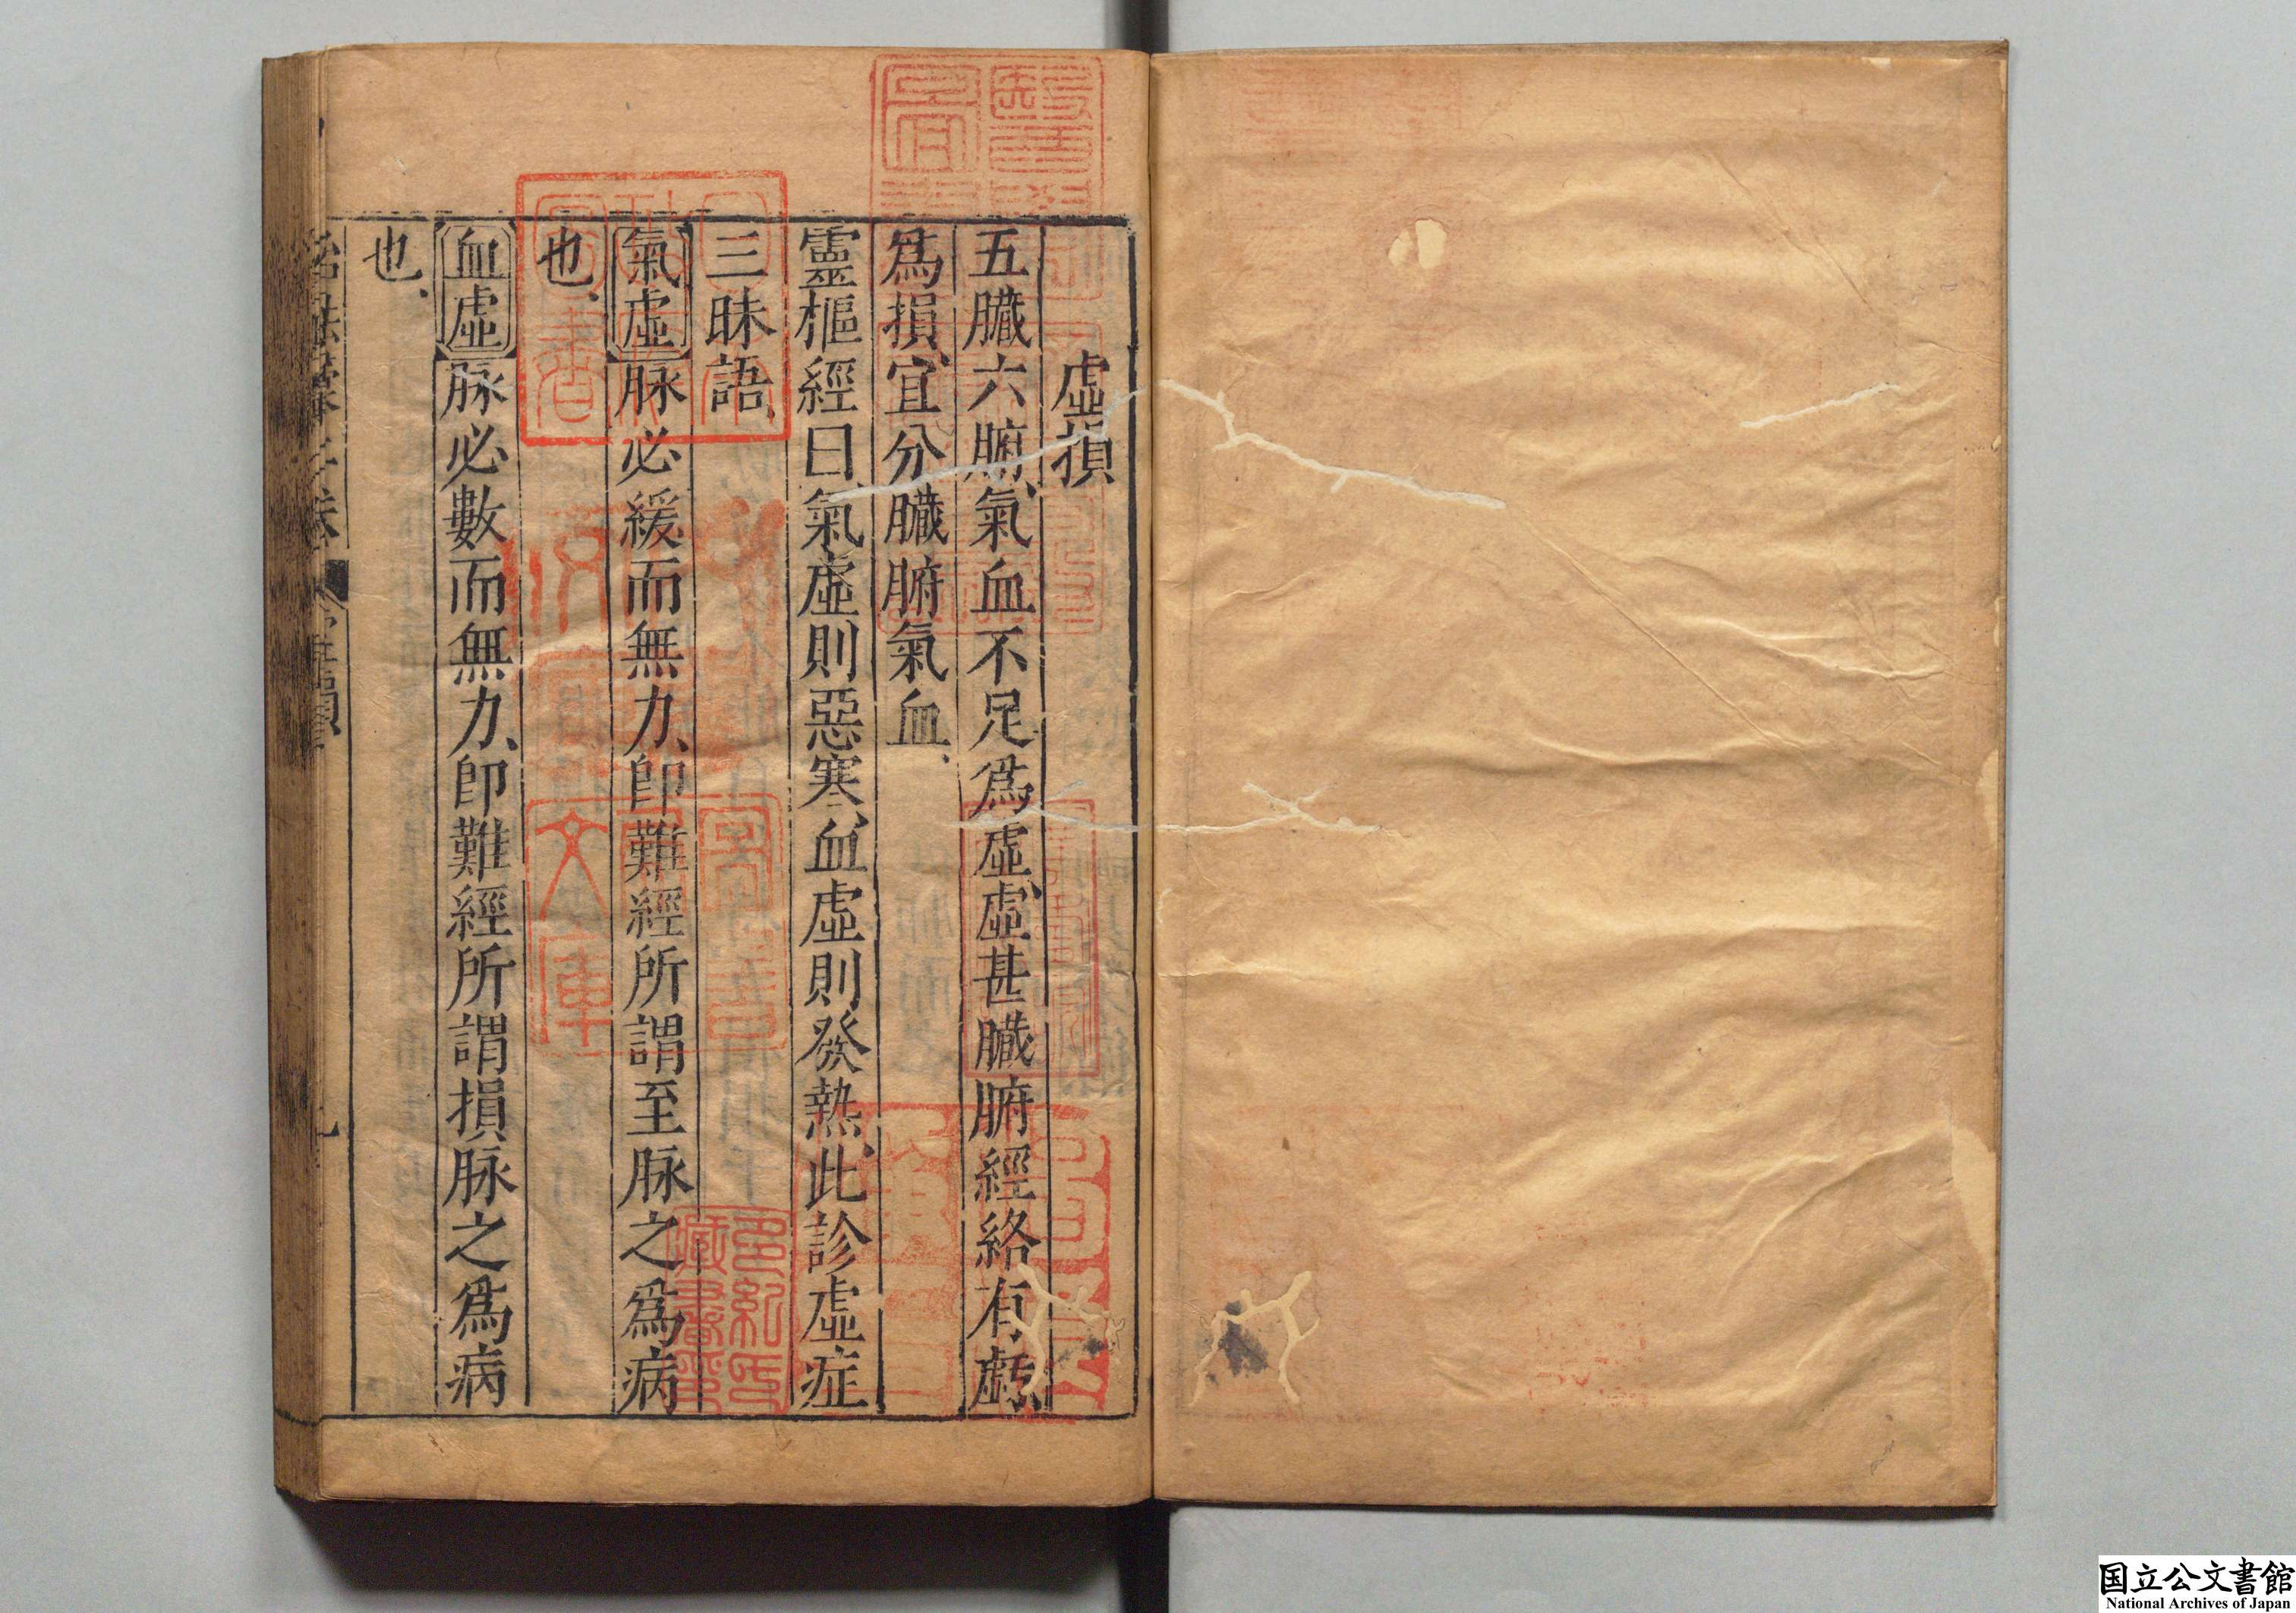 虛損
五臟六腑、氣血不足爲虛、虛甚臟腑經絡有虧、
爲損、宜分臟腑氣血、
靈樞經曰、氣虛則惡寒、血虛則發熱、此診虛症
三昧語、
氣虛脉必緩而無力、卽難經所謂至脉之爲病
也、
血虛脉必數而無力、卽難經所謂損脉之爲病
也、
国立公文書館
National Archives of Japan